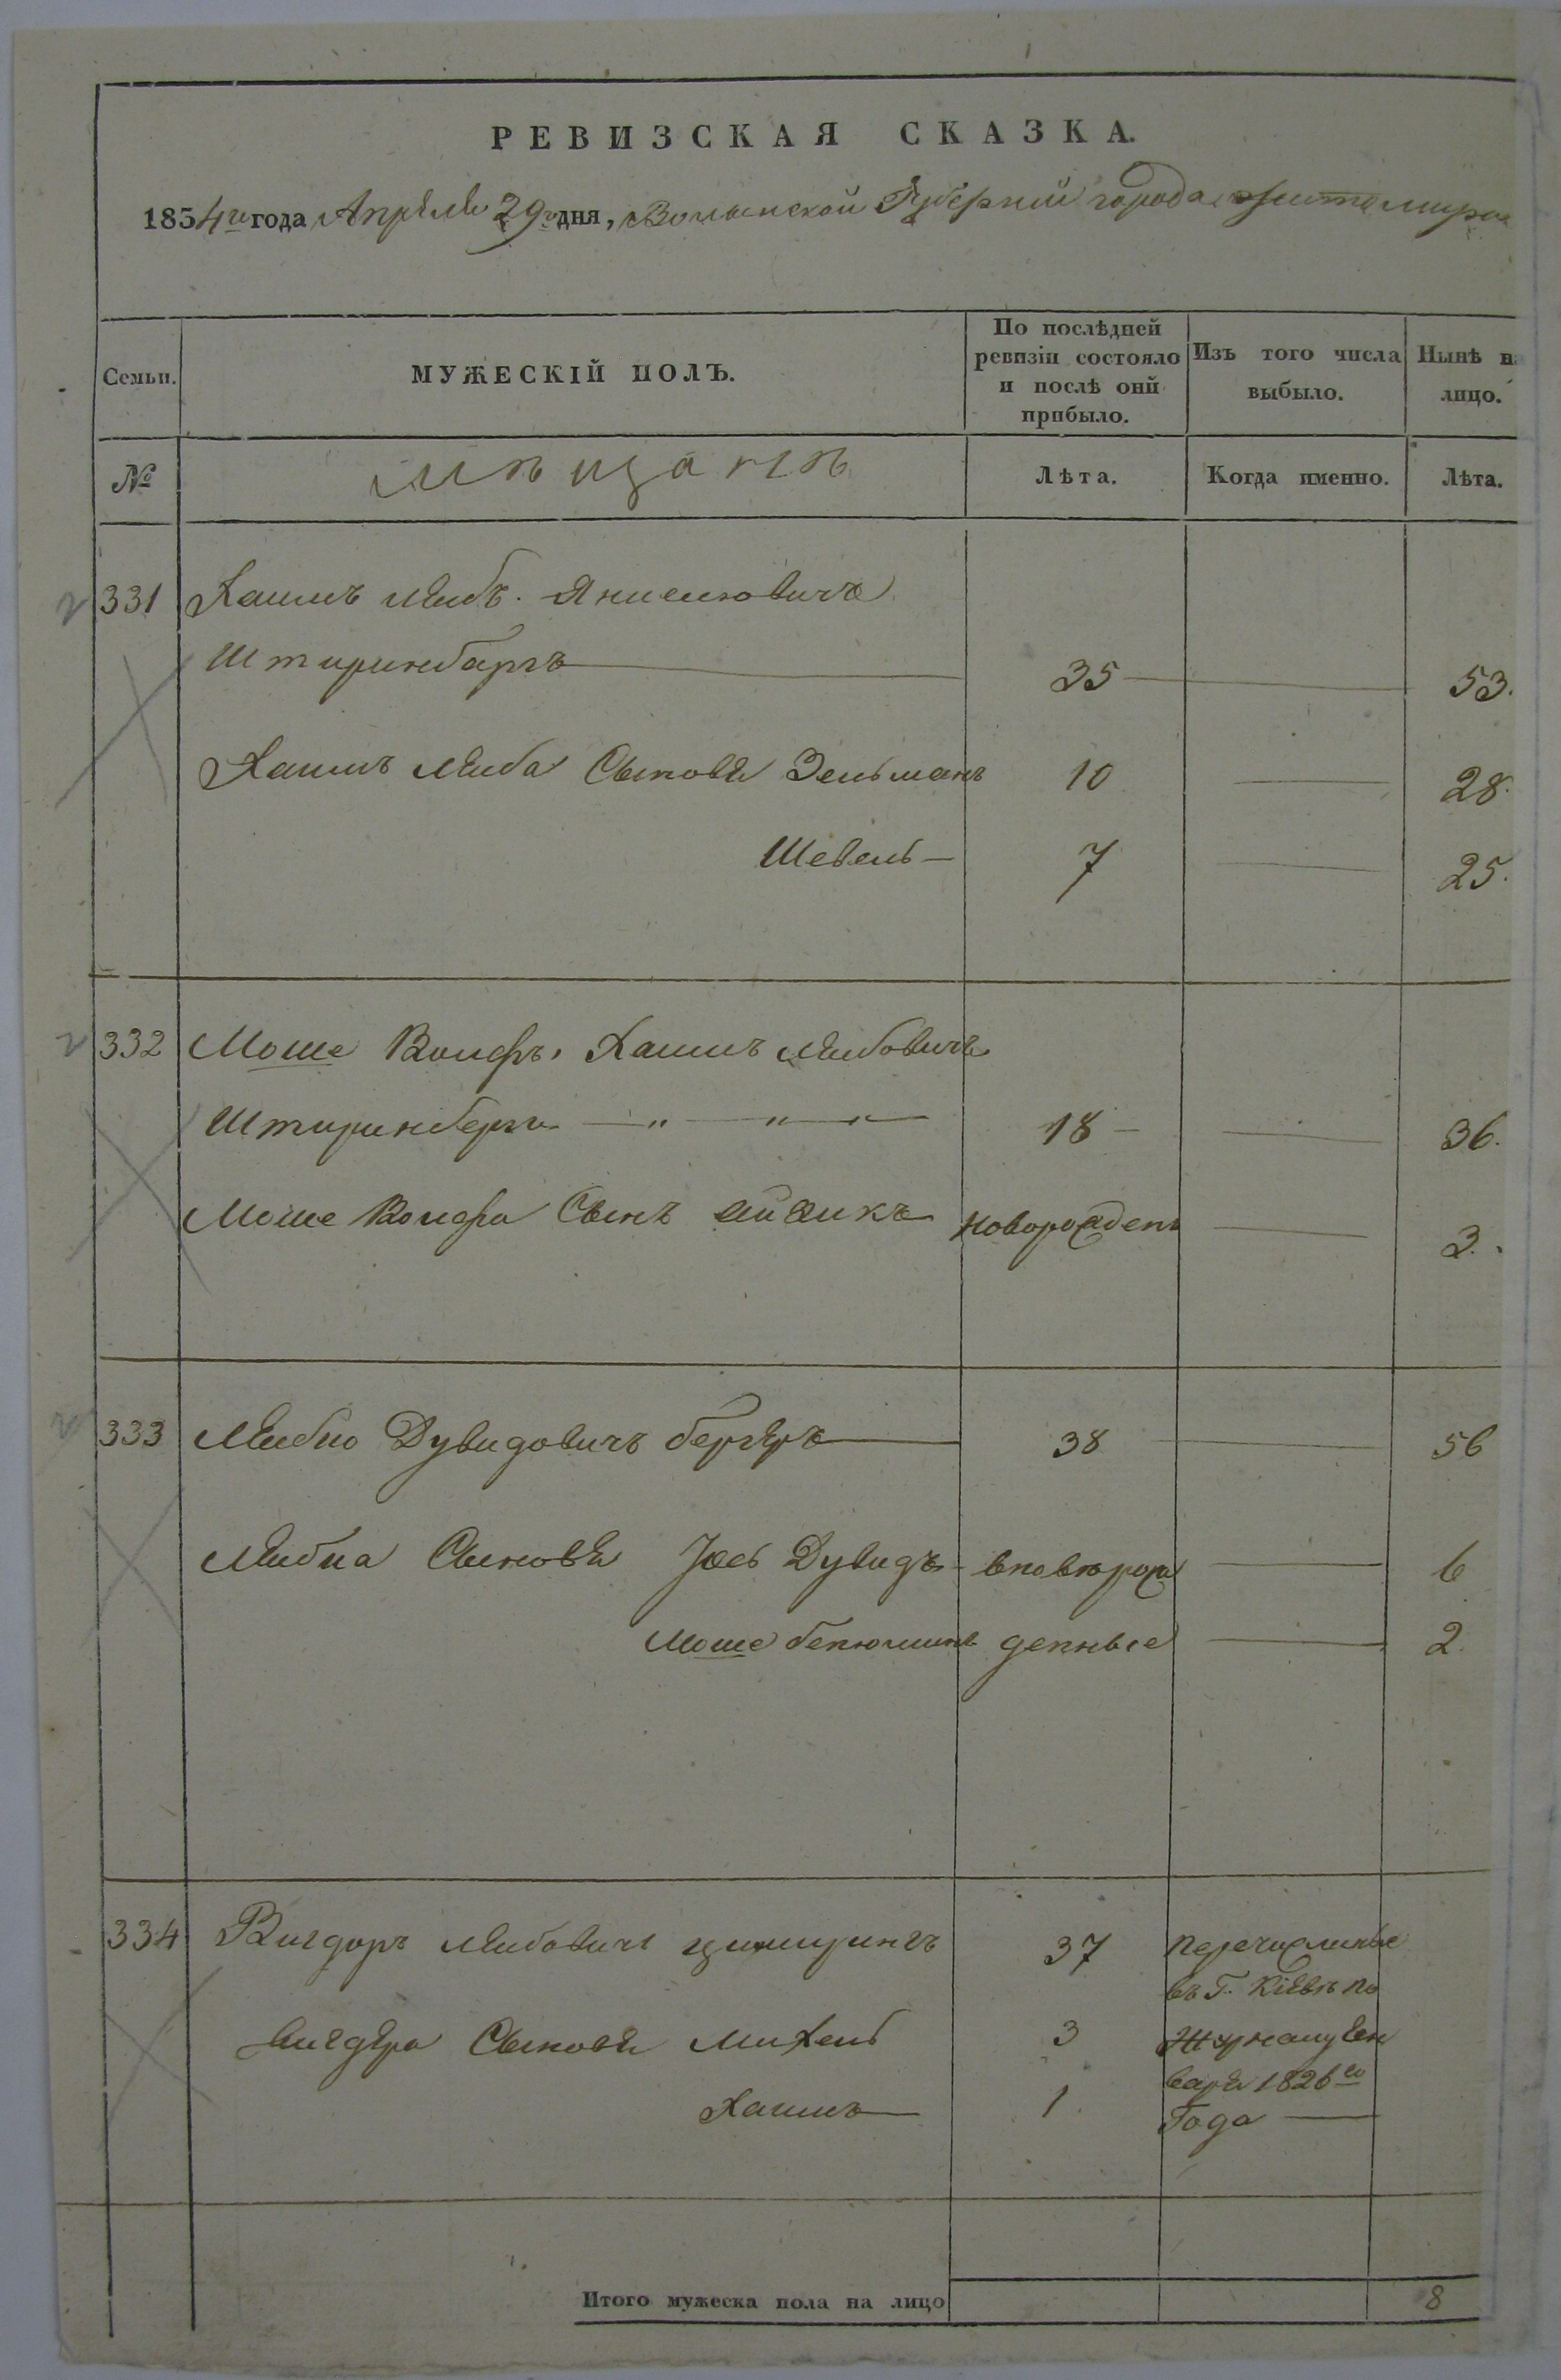 РЕВИЗСКАЯ СКАЗКА.
1854го года Апреля 29го дня, Волынской Губернии города Житомира
Семьи.
МУЖЕСКІЙ ПОЛЪ.
По послѣдней ревизіи состояло и послѣ оной прибыло.
Изъ того числа выбыло.
Нынѣ на лицо.
№
мѣщанѣ
Лѣта.
Когда именно.
Лѣта.
331 Хаимъ Лейбъ Янкелиовичъ
Штиринбаргъ 35 53.
Хаимъ Лейба Сыновя Зельманъ 10 28.
Шевель 7 25.
332 Моше Волфъ Хаимъ Лейбовичъ
Штиринберг 18 36.
Моше Волфа Сынъ Айзикъ новорожденъ 3.
333 Лейбио Дувидовичъ бергеръ 38 56
Лейбиа Сыновя Іось Дувидъ вновь рож 6
Моше бенюминъ денные 2
334 Вигдоръ Лейбовичъ 37 перечисленые
въ Г. Кіевъ по
Вигдора Сыновя Михель 3
варя 1826го
Хаимъ 1 Года
Итого мужеска пола на лицо 8